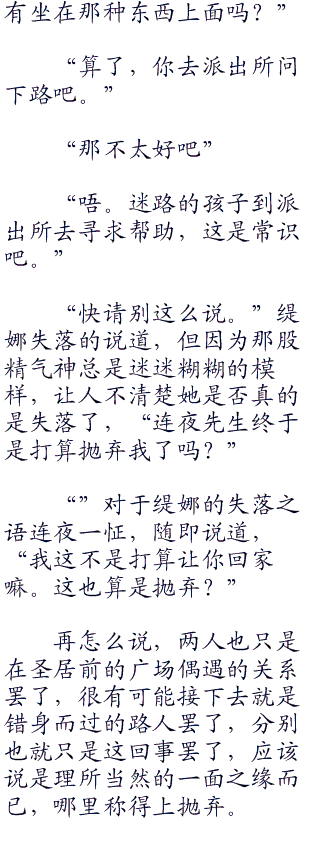 有坐在那种东西上面吗？”
“算了，你去派出所问
下路吧。”
“那不太好吧”
“唔。迷路的孩子到派
出所去寻求帮助，这是常识
吧。”
“快请别这么说。”缇
娜失落的说道，但因为那股
精气神总是迷迷糊糊的模
样，让人不清楚她是否真的
是失落了，“连夜先生终于
是打算抛弃我了吗？”
“”对于缇娜的失落之
语连夜一怔，随即说道，
“我这不是打算让你回家
嘛。这也算是抛弃？”
再怎么说，两人也只是
在圣居前的广场偶遇的关系
罢了，很有可能接下去就是
错身而过的路人罢了，分别
也就只是这回事罢了，应该
说是理所当然的一面之缘而
已，哪里称得上抛弃。